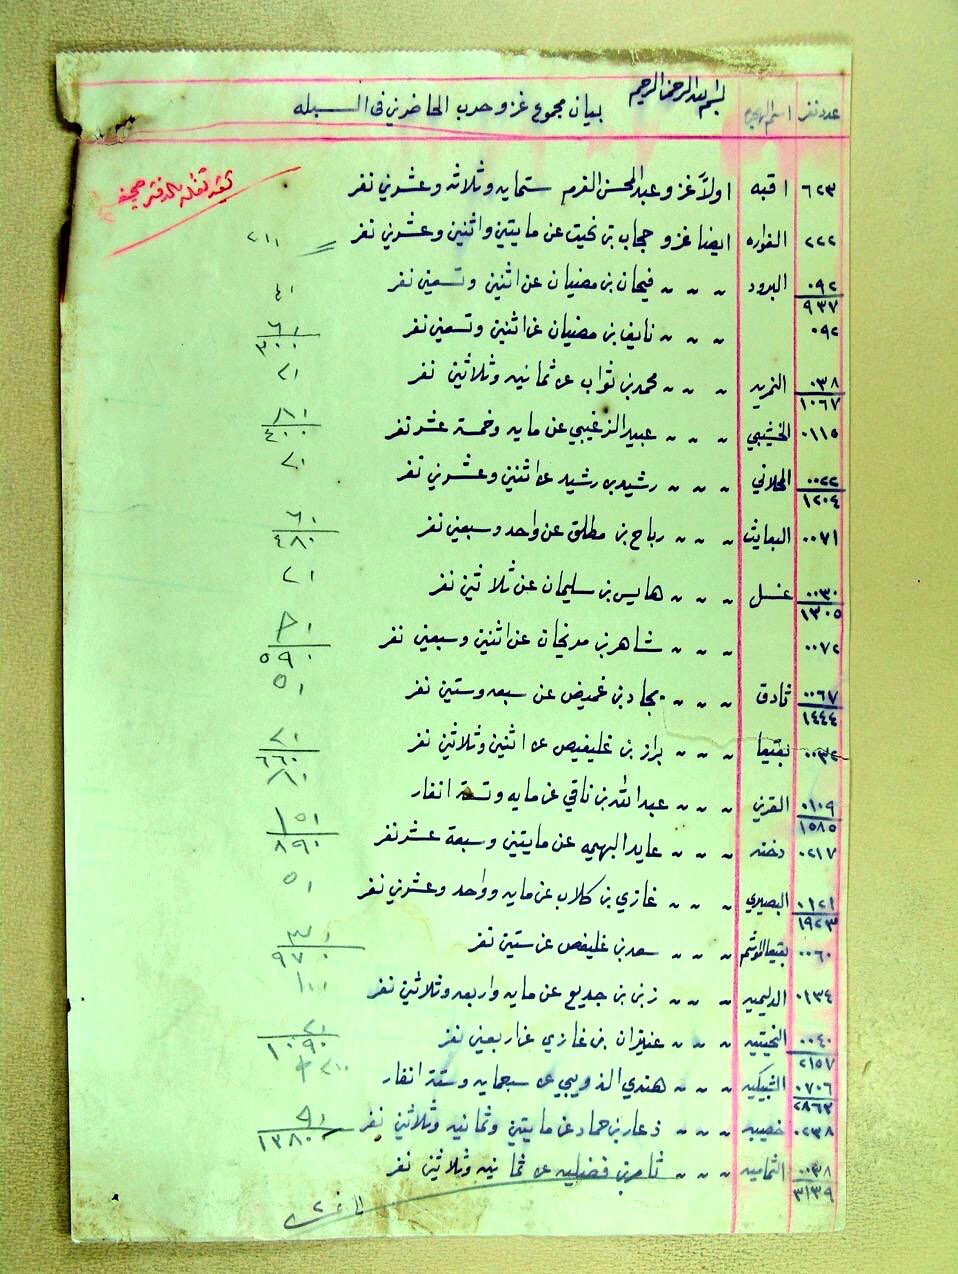 بسم الله الرحمن الرحيم
عدد نفر اسم الهجره بيان مجموع غزو حرب الحاضرين في السبله
٦٢٣ اقبه اولاً غزو عبدالمحسن الفرم ستمايه وثلاثه وعشرين نفر
٢٢٢ الفواره ايضا غزو حجاب بن نحيت عن مايتين واثنين وعشرين نفر ٢١١
٠٩٢ البرود " " " فيحان بن مضيان عن اثنين وتسعين نفر ٤١
٩٣٧
٠٩٢ " " " نايف بن مضيان عن اثنين وتسعين نفر ٦١
٣٠٠
٠٣٨ النمريه " " " محمد بن ثواب عن ثمانيه وثلاثين نفر ٢١
١٠٦٧
٠١١٥ الخشيبي " " " عبيد الذغيبي عن مايه وخمسة عشر نفر ٨١
٤٠٠
٠٠٢٢ المحلاني " " " رشيد بن رشيد عن اثنين وعشرين نفر ٢١
١٢٠٤
٠٠٧١ البعايث " " " رباح بن مطلق عن واحد وسبعين نفر ٦١
٤٨٠
٠٠٣٠ عسل " " " هايس بن سليمان عن ثلاثين نفر ٢١
١٣٠٥
٠٠٧٢ " " " شاهر بن مدنخان عن اثنين وسبعين نفر
٥٩٠
٠٠٦٧ ثادق " " " بجاد بن غميض عن سبعه وستين نفر ٥١
١٤٤٤
٠٠٣٢ بقيعا " " " براز بن غليفيص عن اثنين وثلاثين نفر ٢١
٦٦٠
٠١٠٩ القرين " " " عبدالله بن ناقي عن مايه وتسعة انفار ٨١
١٥٨٥
٠٢١٧ دخنه " " " عايد البهيمه عن مايتين وسبعة عشر نفر ١٥١
٨٩٠
٠١٢١ البصيري " " " غازي بن كلاب عن مايه وواحد وعشرين نفر ٥١
١٩٢٣
٠٠٦٠ " " " سعد بن غليفص عن ستين نفر ٣١
٩٧٠
٠١٣٤ الدليميه " " " زبن بن جديع عن مايه واربعه وثلاثين نفر ١٠١
٠٠٤٠ " " " عنيزان بن غازي عن اربعين نفر ٢١
٢١٥٧ ١٠٩٠
٠٧٠٦ الشبيكيه " " " هندي الذويبي عن سبعمايه وستة انفار ٢١٠
٢٨٦٣
٠٢٣٨ خصيبه " " " ذعار بن حماد عن مايتين وثمانيه وثلاثين نفر ٩١
١٣٨٠
٠٠٣٨ " " " ثامر بن فضليه عن ثمانيه وثلاثين نفر
٣١٣٩